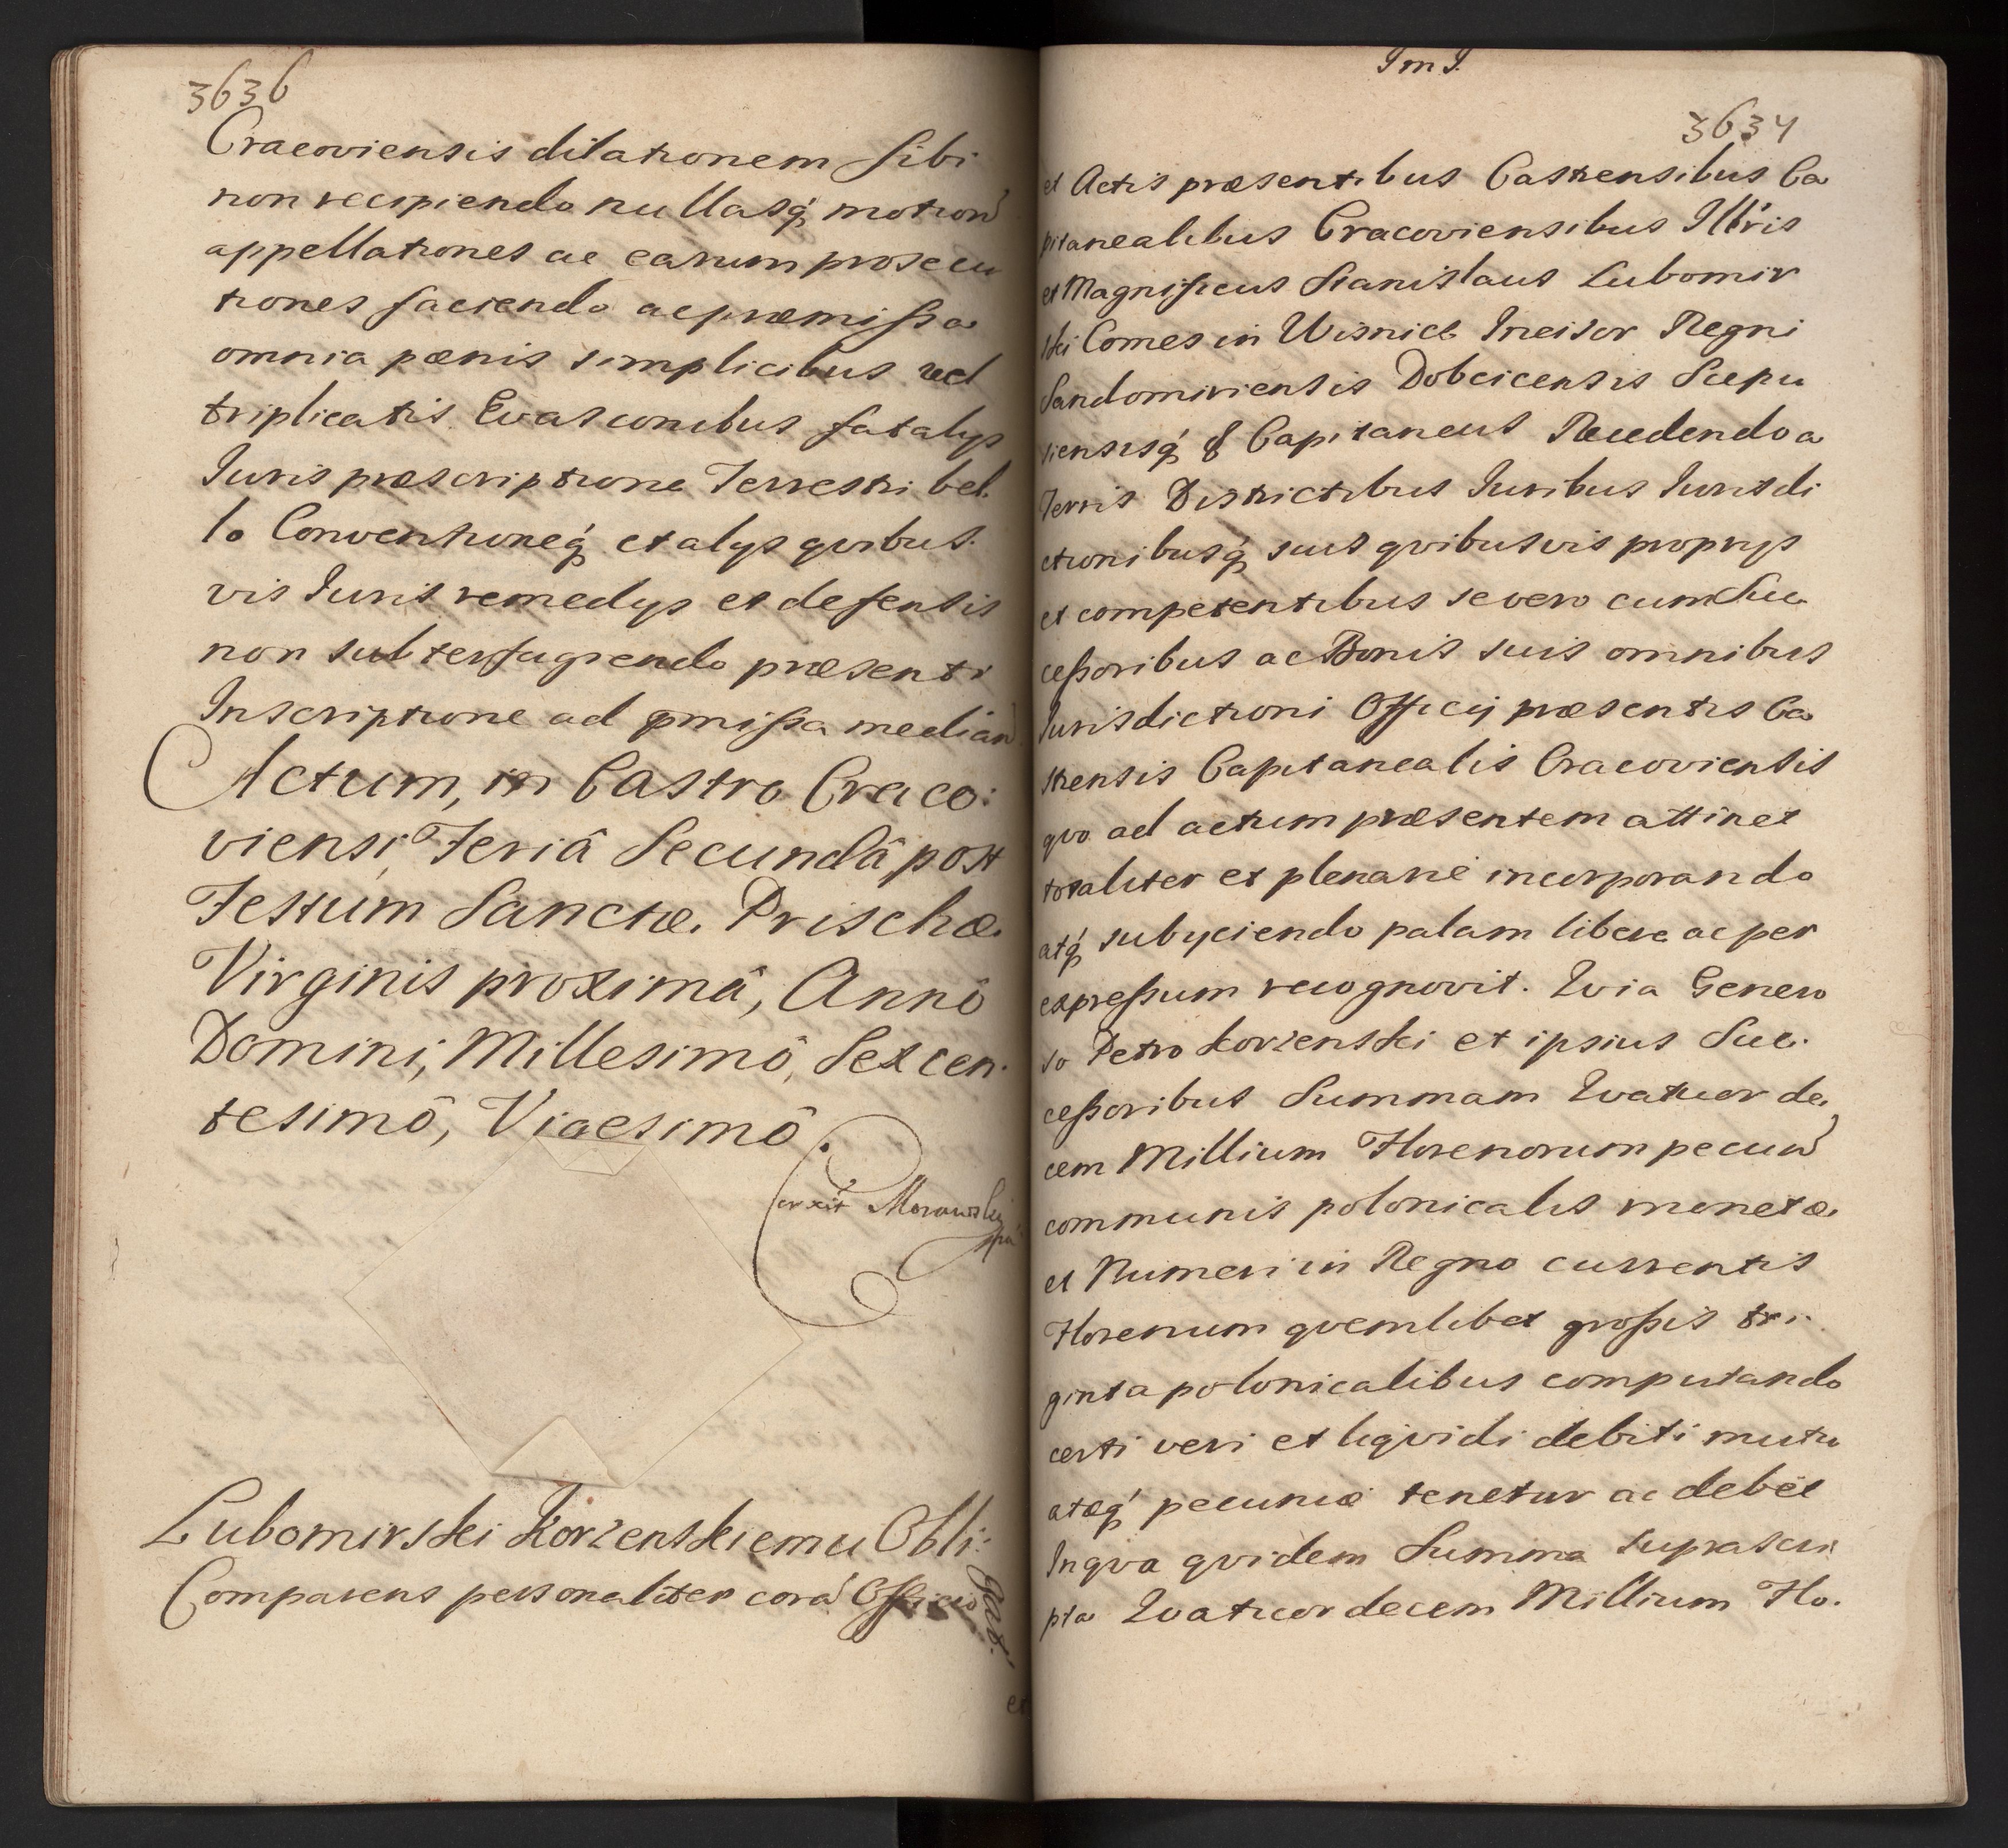 3636
Cracoviensis dilationem sibi
non recipiendo nullasq́ motion̄
appellationes ac earum prosecu
tiones faciendo ac præmissa
omnia pœnis simplicibus vel
triplicatis. Evasionibus fatalys
Iuris præscriptione Terrestri bel.
lo Conventioneq́ et alys qvibus.
vis Iuris remedys et defensis
non subterfugiendo præsenti
Inscriptione ad pmissa median̄
Actum, in Castro Craco:
viensi, Feriâ Secundâ post
Festum Sanctæ Prischæ
Virginis proximâ, Annô
Domini, Millesimô, Sexcen.
tesimô, Vigesimô.
Corexit Morawski
Lubomirski Korzenskiemu Obli:
gat.
Comparens personaliter corā Officio
et
I m I.
3637
et Actis præsentibus Castrensibus Ca
pitanealibus Cracoviensibus Illris
et Magnificus Stanislaus Lubomir
ski Comes in Wisnicz Incisor Regni
Sandomiriensis Dobcicensis Scepu
siensisq́ & Capitaneus Recedendo a
Terris Districtibus Iuribus Iurisdi
ctionibusq́ suis qvibusvis proprys
et competentibus se vero cum Suc
cessoribus ac Bonis suis omnibus
Iurisdictioni Officij præsentis Ca
strensis Capitanealis Cracoviensis
qvo ad actum præsentem attinet
totaliter et plenarie incorporando
atq́ subyciendo palam libere ac per
expressum recognovit. Qvia Genero
so Petro Korzenski et ipsius Suc.
cessoribus Summam Qvatuor de
cem Millium Florenorum pecun̄
communis polonicalis monetæ
et Numeri in Regno currentis
Florenum qvemlibet grossis tri.
ginta polonicalibus computando
certi veri et liqvidi debiti mutu
atæq́ pecuniæ tenetur ac debet
In qva qvidem Summa suprascri
pta Qvatuor decem Millium Flo.